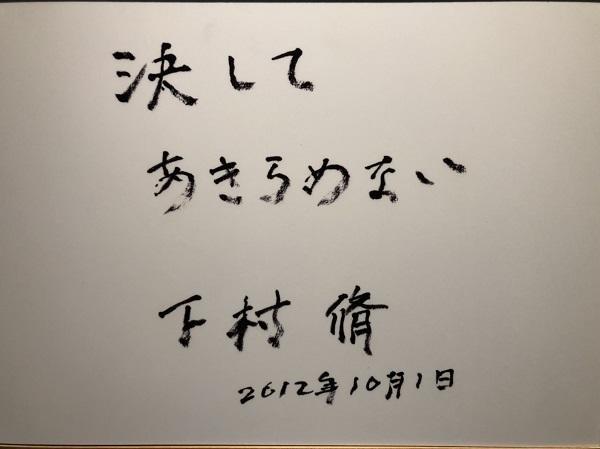 決して
あきらめない
下村脩
2012年10月1日